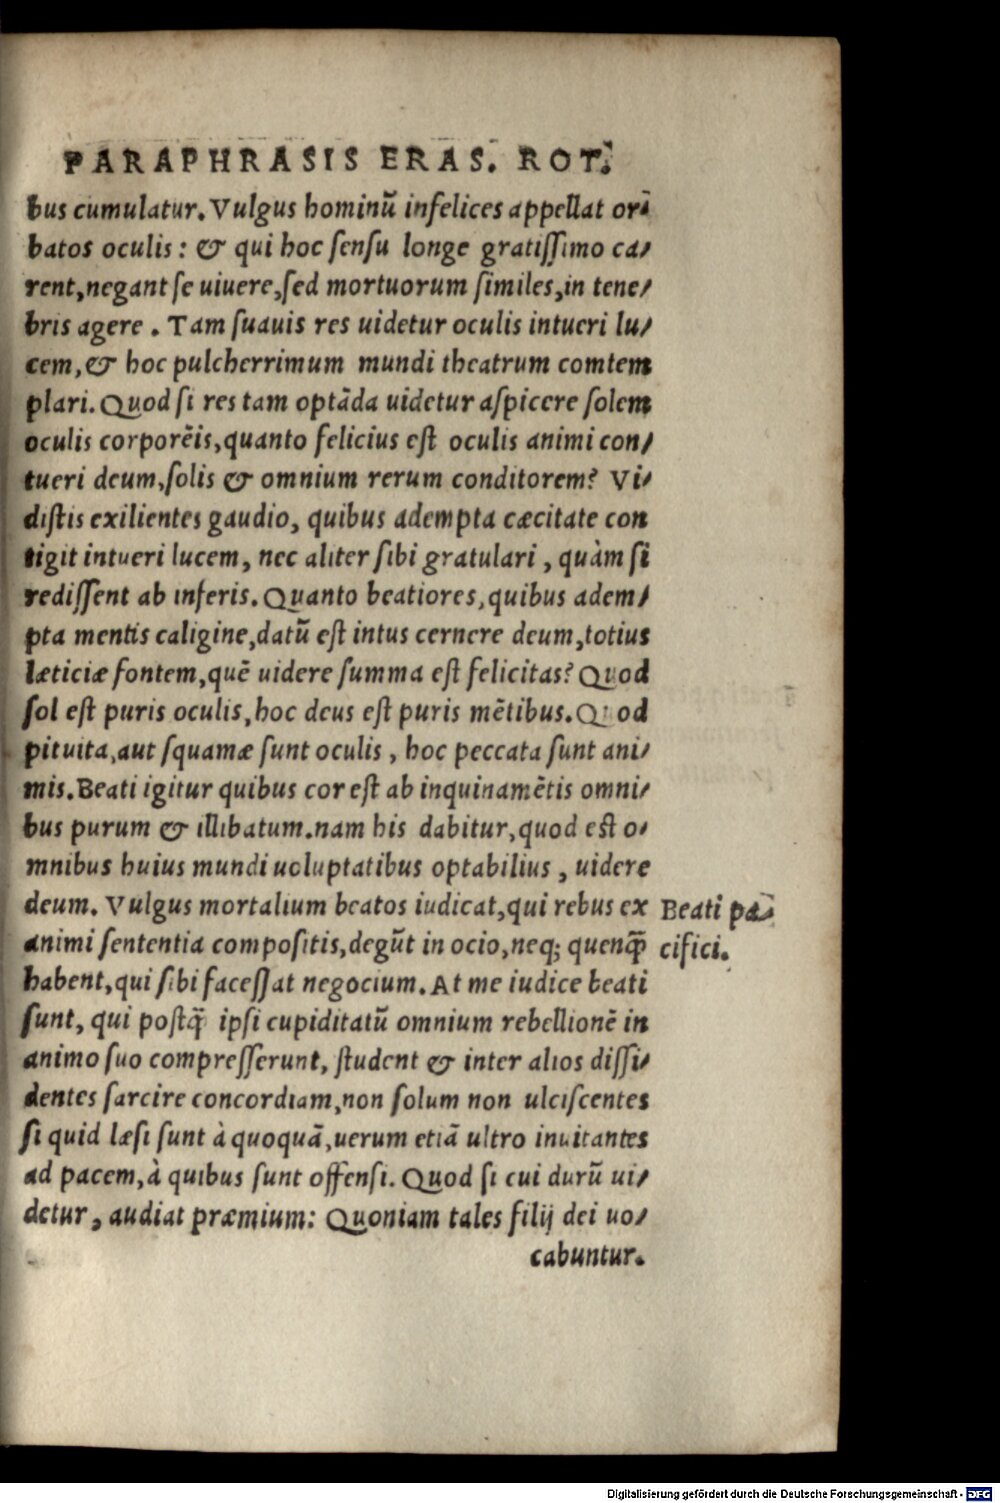 PARAPHRASIS ERAS. ROT.
bus cumulatur. Vulgus hominū infelices appellat or⸗
batos oculis: & qui hoc ſenſu longe gratiſſimo ca⸗
rent, negant ſe uiuere, ſed mortuorum ſimiles, in tene⸗
bris agere. Tam ſuauis res uidetur oculis intueri lu⸗
cem, & hoc pulcherrimum mundi theatrum comtem
plari. Quod ſi res tam optāda uidetur aſpicere ſolem
oculis corporēis, quanto felicius eſt oculis animi con⸗
tueri deum, ſolis & omnium rerum conditorem? Vi⸗
diſtis exilientes gaudio, quibus adempta cæcitate con
tigit intueri lucem, nec aliter ſibi gratulari, quàm ſi
rediſſent ab inferis. Quanto beatiores, quibus adem⸗
pta mentis caligine, datū eſt intus cernere deum, totius
læticiæ fontem, quē uidere ſumma eſt felicitas? Quod
ſol eſt puris oculis, hoc deus eſt puris mētibus. Quod
pituita, aut ſquamæ ſunt oculis, hoc peccata ſunt ani⸗
mis. Beati igitur quibus cor eſt ab inquinamētis omni⸗
bus purum & illibatum. nam his dabitur, quod eſt o⸗
mnibus huius mundi uoluptatibus optabilius, uidere
deum. Vulgus mortalium beatos iudicat, qui rebus ex
animi ſententia compoſitis, degūt in ocio, neq; quenq̃
habent, qui ſibi faceſſat negocium. At me iudice beati
ſunt, qui poſtq̃ ipſi cupiditatū omnium rebellionē in
animo ſuo compreſſerunt, ſtudent & inter alios diſſi⸗
dentes ſarcire concordiam, non ſolum non ulciſcentes
ſi quid læſi ſunt à quoquā, uerum etiā ultro inuitantes
ad pacem, à quibus ſunt offenſi. Quod ſi cui durū ui⸗
detur, audiat præmium: Quoniam tales filij dei uo⸗
cabuntur.
Beati pa⸗
cifici.
Digitalisierung gefördert durch die Deutsche Forschungsgemeinschaft - DFG